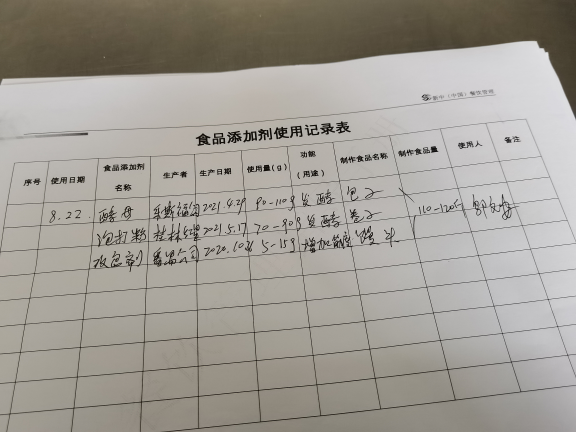 新中（中国）餐饮管理
食品添加剂使用记录表
序号 使用日期 食品添加剂名称 生产者 生产日期 使用量(g) 功能（用途） 制作食品名称 制作食品量 使用人 备注
8.22. 酵母 2021.4.29 90-110g 发酵 包子
泡打粉 桂林 2021.5.17 70-90g 发酵 卷子 110-120斤
改良剂 公司 2020.10 5-15g 增加 馒头